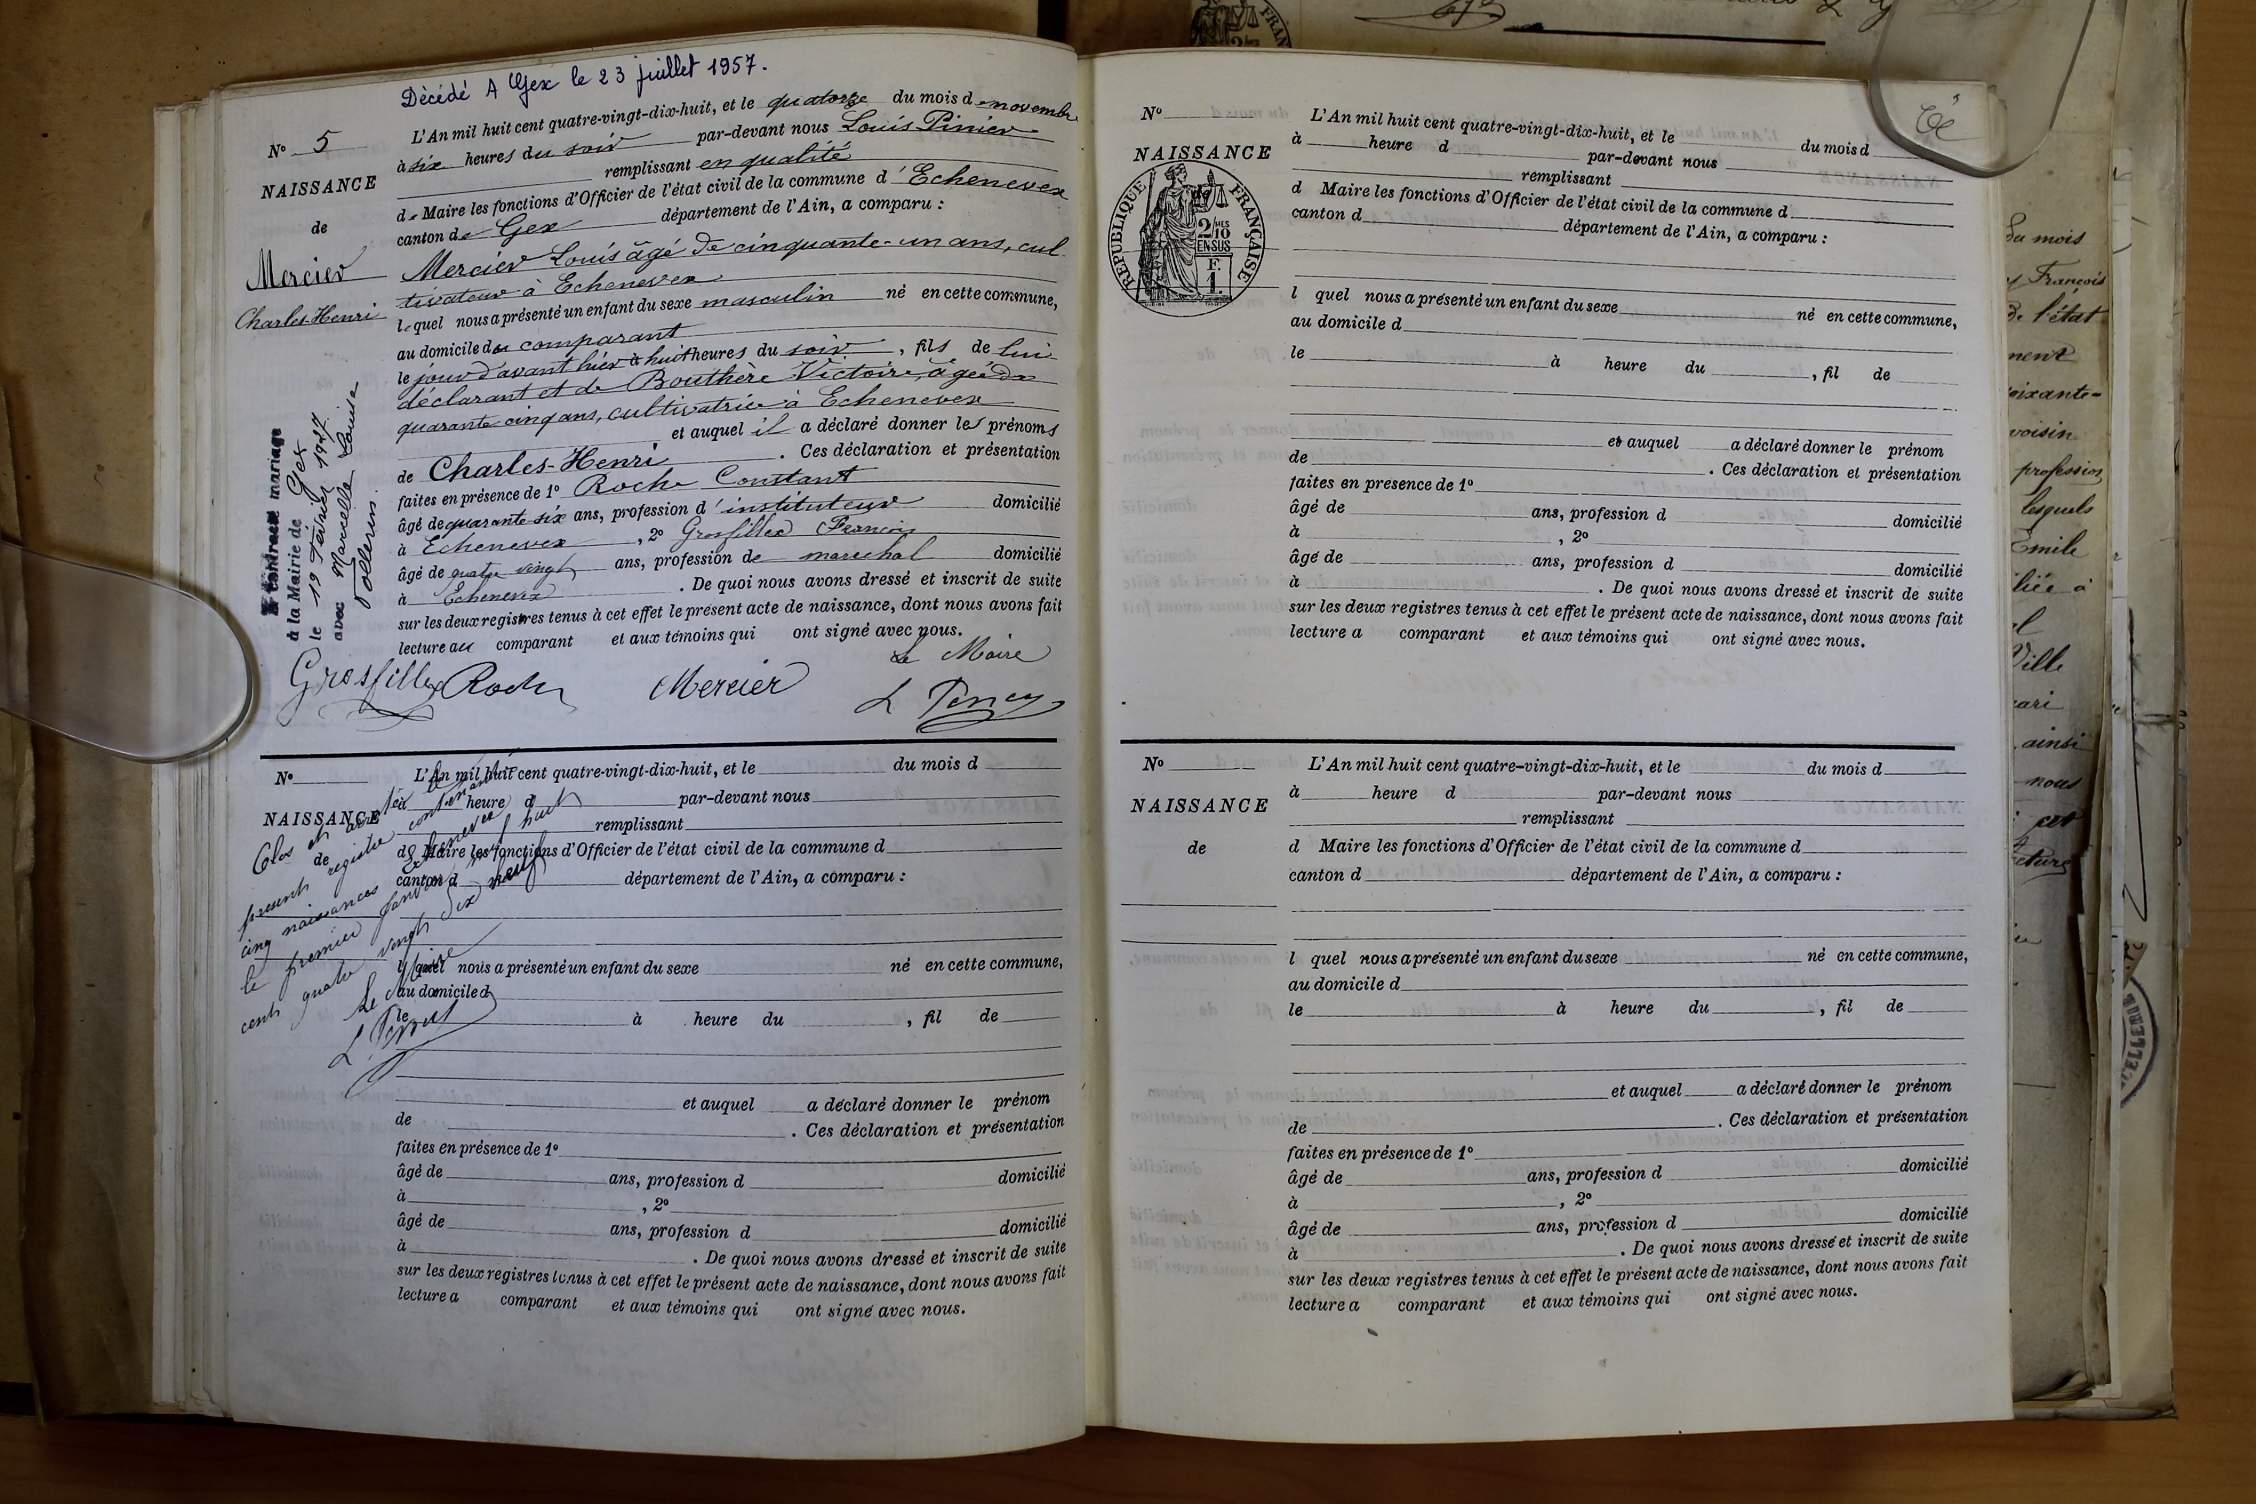 Décédé A Gex le 23 juillet 1957.
Nº 5
NAISSANCE
de
Mercier
Charles-Henri
a Contracté mariage
à la Mairie de Gex
le 19 février 1927
avec Marcelle Louise
L'An mil huit cent quatre-vingt-dix-huit, et le quatorze du mois de novembre
à six heures du soir par-devant nous Louis
remplissant en qualité
de Maire les fonctions d'Officier de l'état civil de la commune d'Echenevex
canton de Gex département de l'Ain, a comparu :
Mercier Louis âgé de cinquante-un ans, cul-
tivateur à Echenevex
lequel nous a présenté un enfant du sexe masculin né en cette commune,
au domicile du comparant
le jour d'avant hier à huit heures du soir, fils de lui
déclarant et de Bouthère Victoire, âgée de
quarante cinq ans, cultivatrice à Echenevex
et auquel il a déclaré donner les prénoms
de Charles-Henri. Ces déclaration et présentation
faites en présence de 1º Roche Constant
âgé de quarante six ans, profession d'instituteur domicilié
à Echenevex, 2º Grosfillex François
âgé de quatre vingt ans, profession de marechal domicilié
à Echenevex. De quoi nous avons dressé et inscrit de suite
sur les deux registres tenus à cet effet le présent acte de naissance, dont nous avons fait
lecture au comparant et aux témoins qui ont signé avec nous.
Le Maire
Grosfillex Roche Mercier
Nº
NAISSANCE
de
Clos et arrêté le
présent registre contenant
cinq naissances Echenevex
le premier janvier mil huit
cent quatre vingt dix neuf
Le Maire
L'An mil huit cent quatre-vingt-dix-huit, et le du mois d
à heure d par-devant nous
remplissant
d Maire les fonctions d'Officier de l'état civil de la commune d
canton d département de l'Ain, a comparu :
l quel nous a présenté un enfant du sexe né en cette commune,
au domicile d
le à heure du , fil de
et auquel a déclaré donner le prénom
de . Ces déclaration et présentation
faites en présence de 1º
âgé de ans, profession d domicilié
à , 2º
âgé de ans, profession d domicilié
à . De quoi nous avons dressé et inscrit de suite
sur les deux registres tenus à cet effet le présent acte de naissance, dont nous avons fait
lecture a comparant et aux témoins qui ont signé avec nous.
Nº
NAISSANCE
de
RÉPUBLIQUE FRANÇAISE
2/10
EN SUS
F.
1.
L'An mil huit cent quatre-vingt-dix-huit, et le du mois d
à heure d par-devant nous
remplissant
d Maire les fonctions d'Officier de l'état civil de la commune d
canton d département de l'Ain, a comparu :
l quel nous a présenté un enfant du sexe né en cette commune,
au domicile d
le à heure du , fil de
et auquel a déclaré donner le prénom
de . Ces déclaration et présentation
faites en présence de 1º
âgé de ans, profession d domicilié
à , 2º
âgé de ans, profession d domicilié
à . De quoi nous avons dressé et inscrit de suite
sur les deux registres tenus à cet effet le présent acte de naissance, dont nous avons fait
lecture a comparant et aux témoins qui ont signé avec nous.
Nº
NAISSANCE
de
L'An mil huit cent quatre-vingt-dix-huit, et le du mois d
à heure d par-devant nous
remplissant
d Maire les fonctions d'Officier de l'état civil de la commune d
canton d département de l'Ain, a comparu :
l quel nous a présenté un enfant du sexe né en cette commune,
au domicile d
le à heure du , fil de
et auquel a déclaré donner le prénom
de . Ces déclaration et présentation
faites en présence de 1º
âgé de ans, profession d domicilié
à , 2º
âgé de ans, profession d domicilié
à . De quoi nous avons dressé et inscrit de suite
sur les deux registres tenus à cet effet le présent acte de naissance, dont nous avons fait
lecture a comparant et aux témoins qui ont signé avec nous.
du mois
François
de l'état
voisin
profession
lesquels
Emile
Ville
ainsi
nous